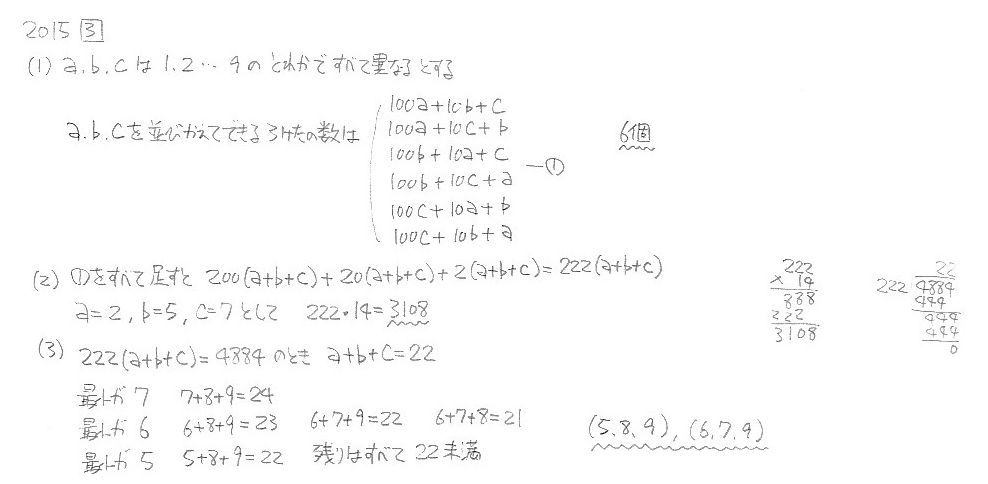 2015 3
(1) a.b.cは 1.2…9の どれかで すべて異なるとする
100a+10b+c
100a+10c+b
a.b.cを並びかえてできる3けたの数は 6個
100b+10a+c
100b+10c+a ー①
100c+10a+b
100c+10b+a
(2) ①をすべて足すと 200(a+b+c)+20(a+b+c)+2(a+b+c)=222(a+b+c)
a=2, b=5, c=7として 222・14=3108
222
×14
888
222
3108
22
222 4884
444
444
444
0
(3) 222(a+b+c)=4884のとき a+b+c=22
最小が7 7+8+9=24
最小が6 6+8+9=23 6+7+9=22 6+7+8=21
最小が5 5+8+9=22 残りはすべて22未満
(5.8.9), (6.7.9)